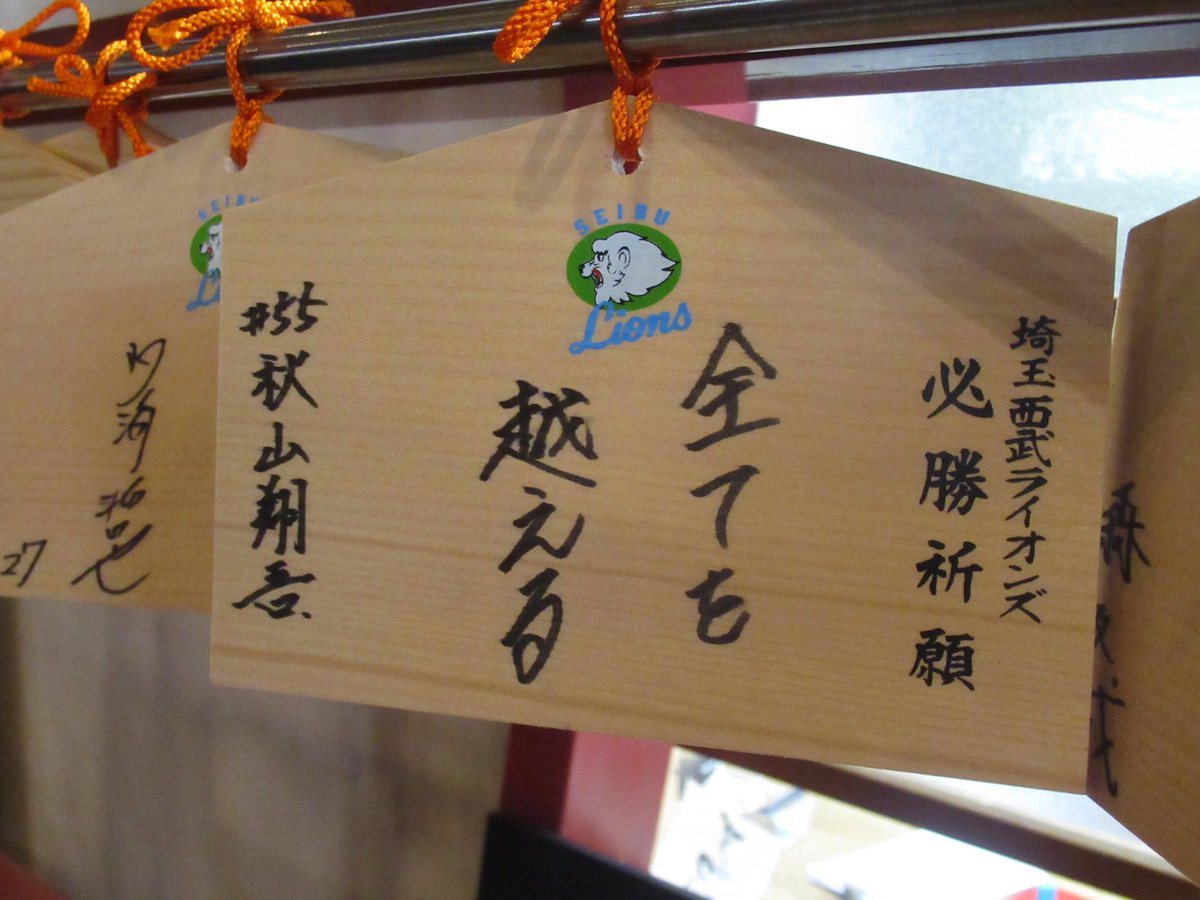 SEIBU
Lions
埼玉西武ライオンズ
必勝祈願
全てを
越える
#55 秋山翔吾
SEIBU
27
森